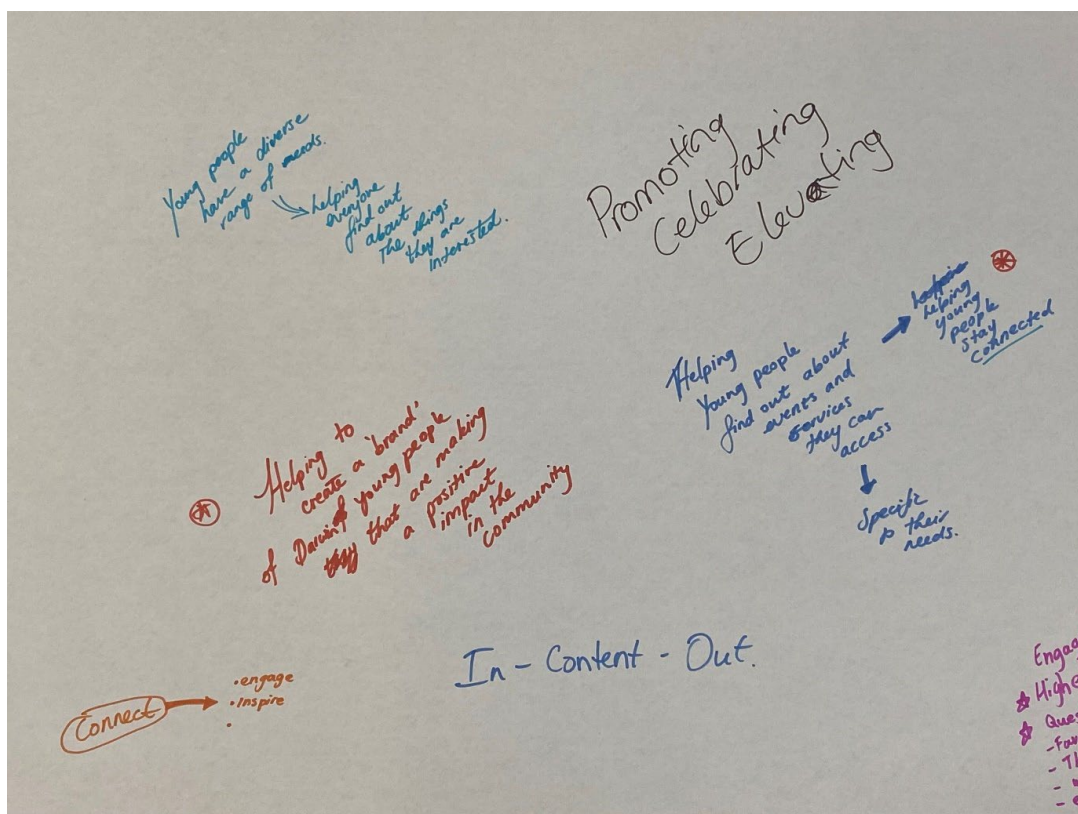 Young people
have a diverse
range of needs.
helping
everyone
find out
about
The things
they are
interested.
Promoting
Celebrating
Elevating
Helping
Young people
find out about
events and
services
they can
access
helping
young
people
stay
connected
Specific
to their
needs.
Helping to
create a 'brand'
of Darwin young people
that are making
a positive
impact
in the
community
In - Content - Out.
Connect
•engage
•Inspire
•
Engag
Highe
Ques